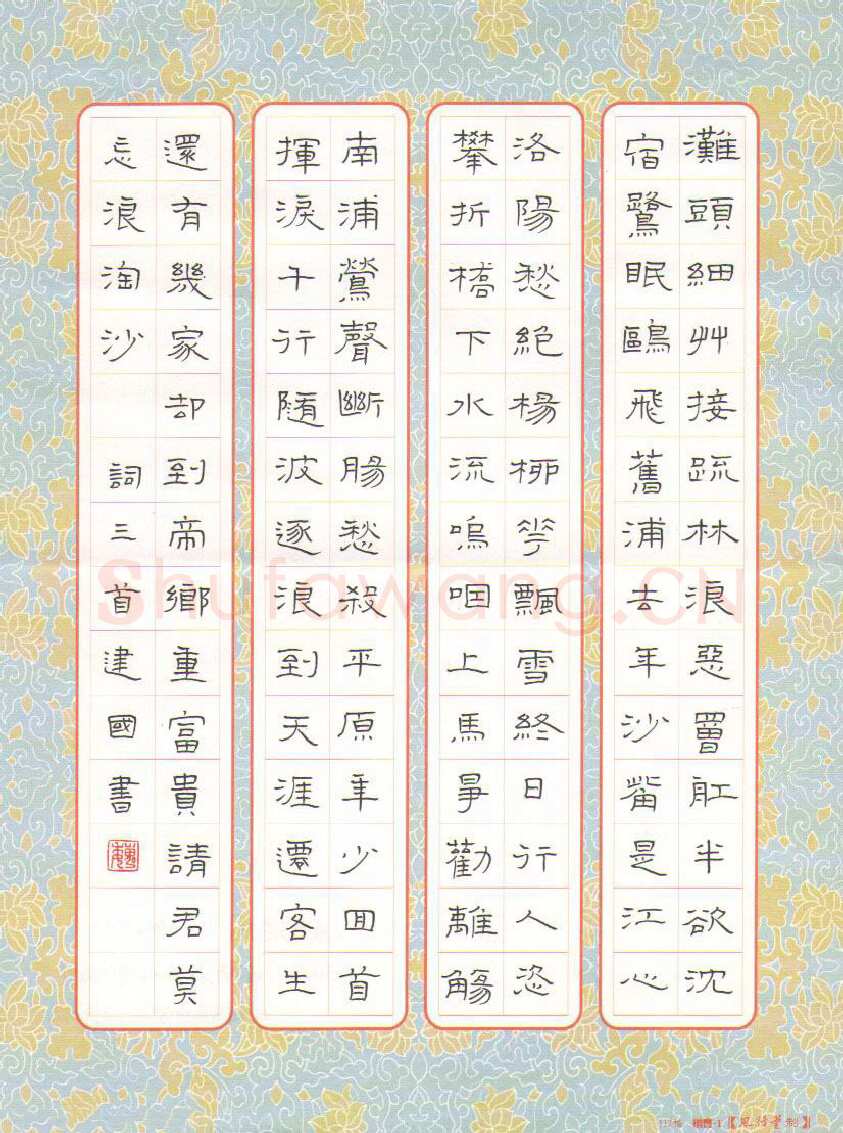 灘頭細艸接疏林浪惡罾舡半欲沈
宿鷺眠鷗飛舊浦去年沙觜是江心
洛陽愁絕楊柳花飄雪終日行人恣
攀折橋下水流嗚咽上馬爭勸離觴
南浦鶯聲斷腸愁殺平原年少回首
揮淚千行隨波逐浪到天涯遷客生
還有幾家却到帝鄉重富貴請君莫
忘浪淘沙 詞三首建國書
Shufawang.CN